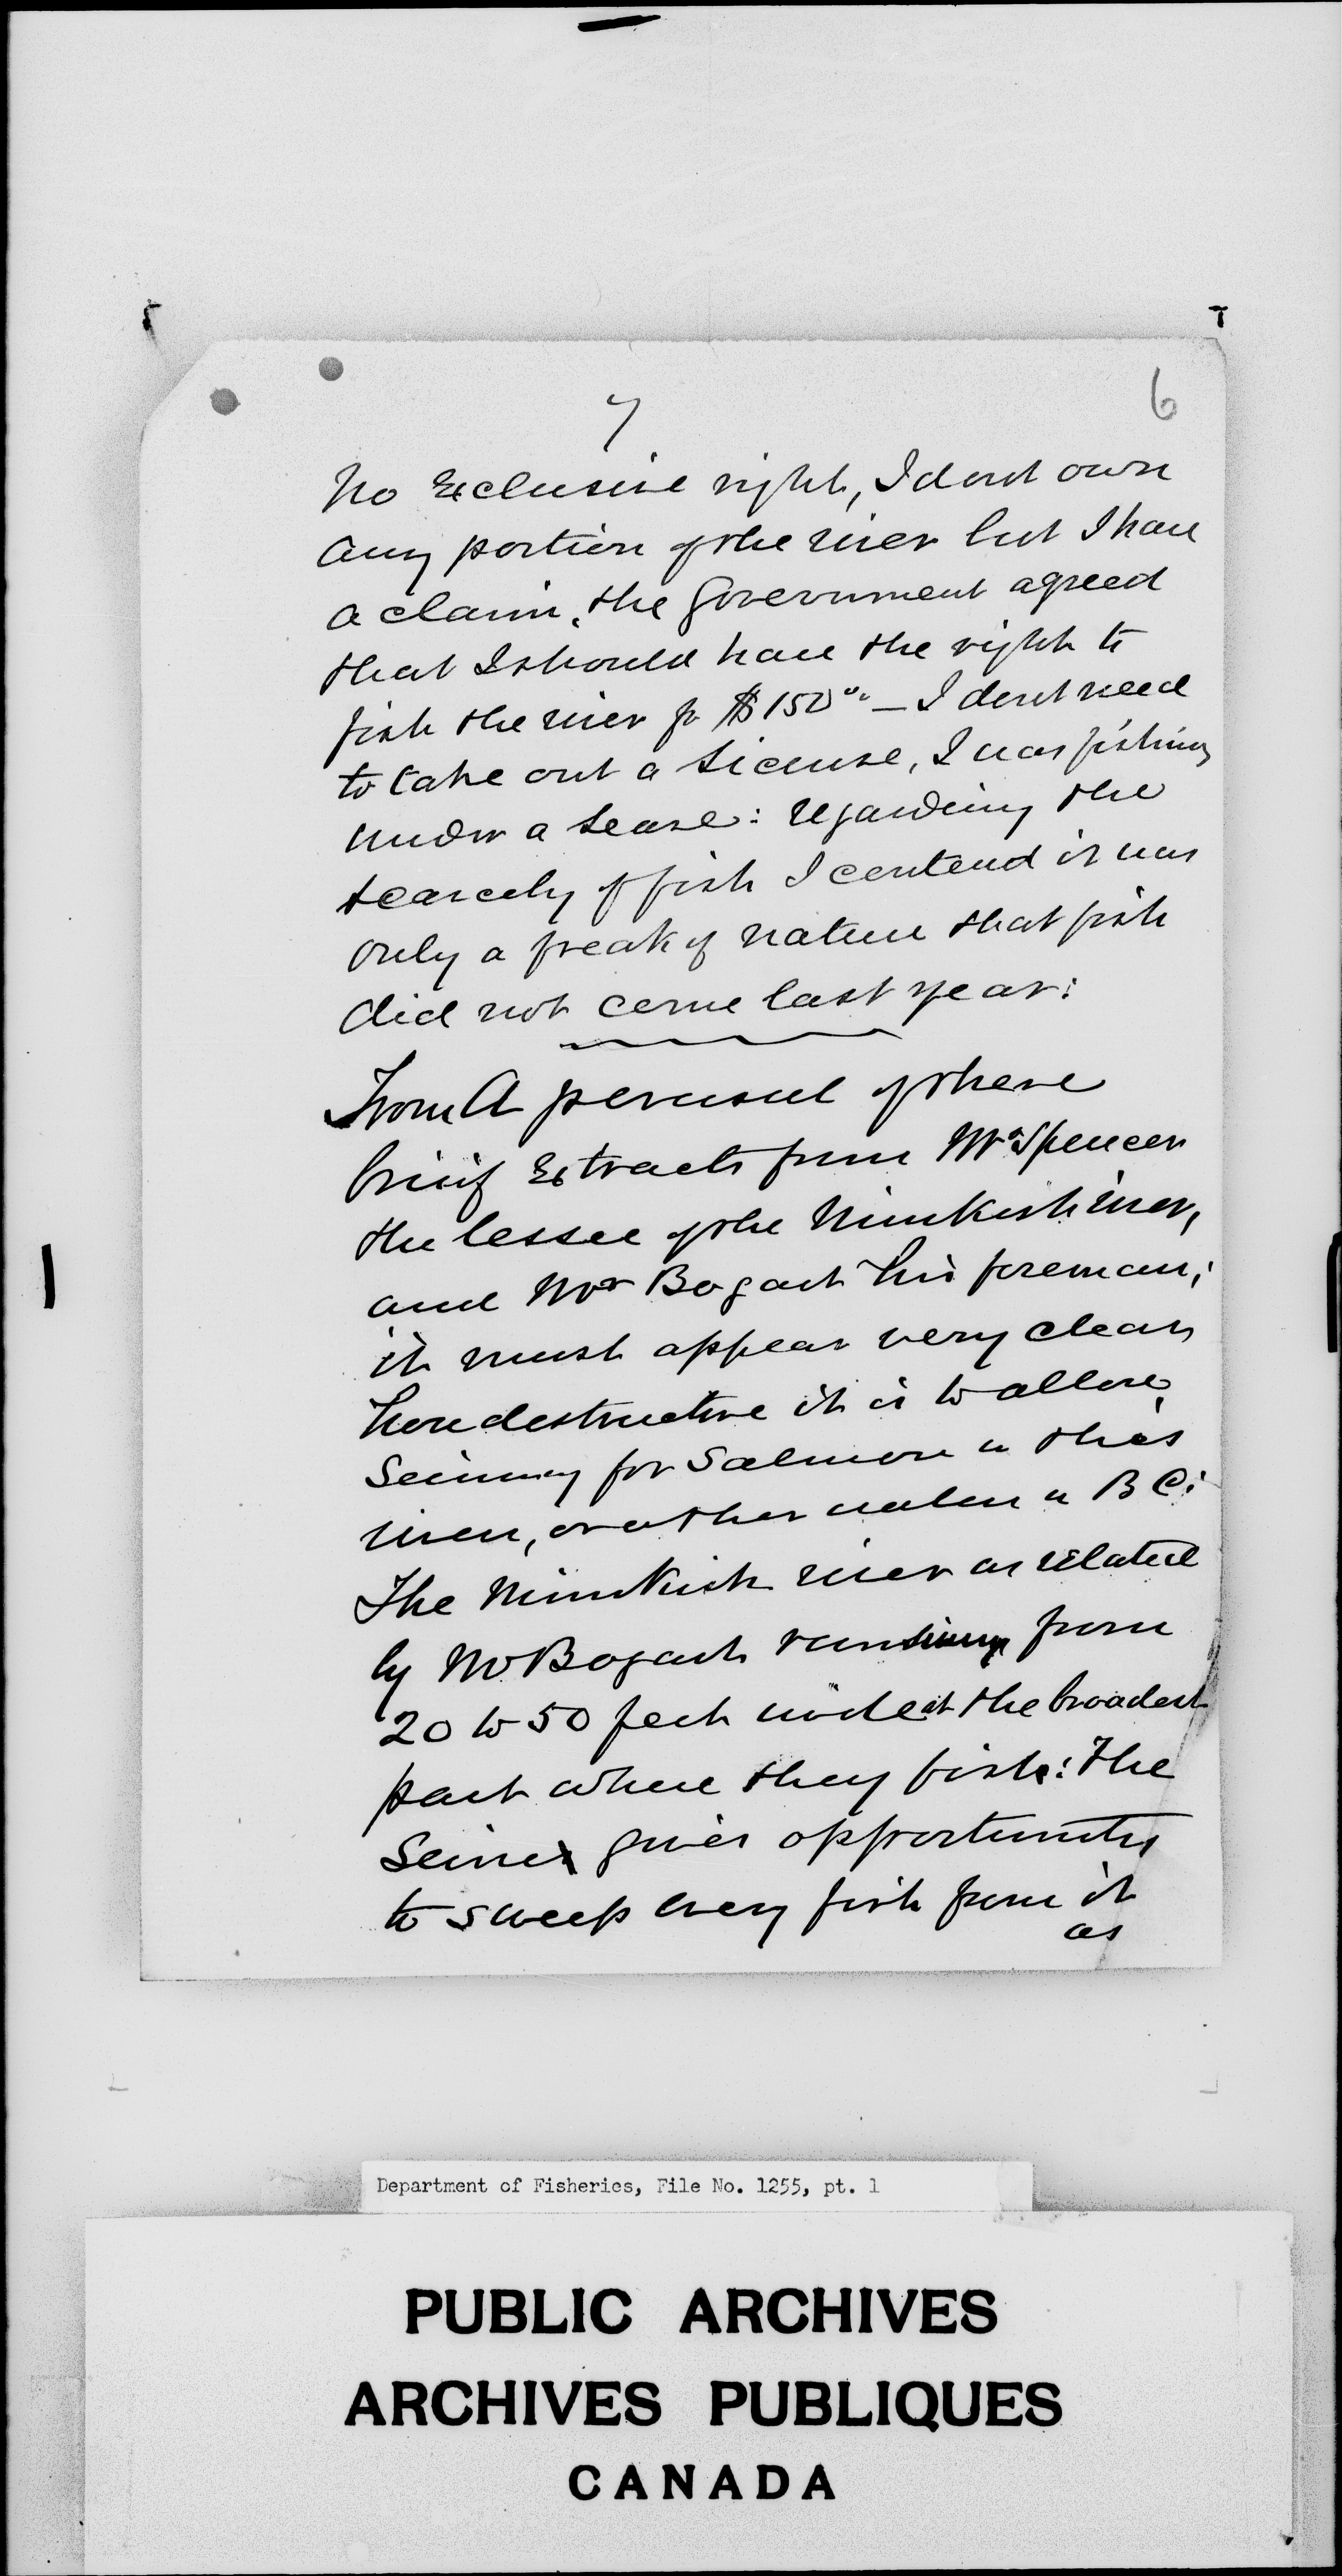 7
6
No Exclusive right, I dont own
any portion of the river but I have
a claim. the Government agreed
that I should have the right to
fish the river for $150°° — I dont need
to take out a License, I was fishing
under a Lease: regarding the
scarcely of fish I contend it was
only a freak of nature that fish
did not come last year:
From A perusul of these
brief Extracts from Mr Spencer
the lessee of the Nimkish river,
and Mr Bogart his foreman;
it must appear very clear
how destructive it is to allow
Seining for Salmon in this
river, or other waters in B C:
The Nimkish river as related
by Mr Bogart runs from
20 to 50 feet wide at the broadest
part where they fish: The
Seine gives opportunity
to sweep every fish from it
as
Department of Fisheries, File No. 1255, pt. 1
PUBLIC ARCHIVES
ARCHIVES PUBLIQUES
CANADA